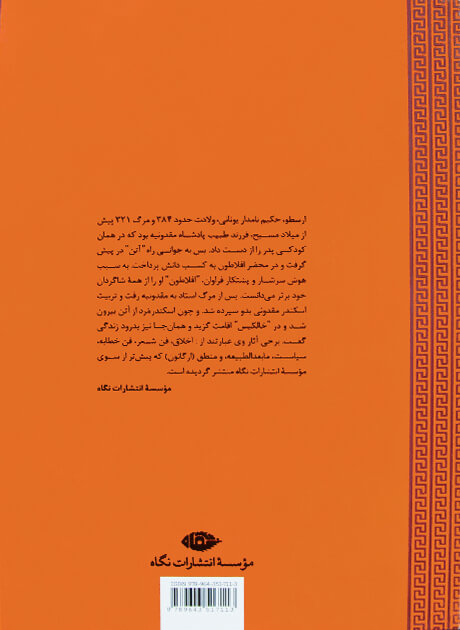 ارسطو، حکیم نامدار یونانی، ولادت حدود ۳۸۴ و مرگ ۳۲۱ پیش
از میلاد مسیح، فرزند طبیب پادشاه مقدونیه بود که در همان
کودکی پدر را از دست داد. پس به جوانی راه "آتن" در پیش
گرفت و در محضر افلاطون به کسب دانش پرداخت. به سبب
هوش سرشار و پشتکار فراوان، "افلاطون" او را از همهٔ شاگردان
خود برتر می‌دانست. پس از مرگ استاد به مقدونیه رفت و تربیت
اسکندر مقدونی بدو سپرده شد. و چون اسکندر مُرد از آتن بیرون
شد و در "خالکیس" اقامت گزید و همان‌جا نیز بدرود زندگی
گفت. برخی آثار وی عبارتند از: اخلاق، فن شعر، فن خطابه،
سیاست، مابعدالطبیعه، و منطق (ارگانون) که پیش‌تر از سوی
مؤسسهٔ انتشارات نگاه منتشر گردیده است.
مؤسسهٔ انتشارات نگاه
مؤسسهٔ انتشارات نگاه
ISBN 978-964-351-711-3
9789643517113